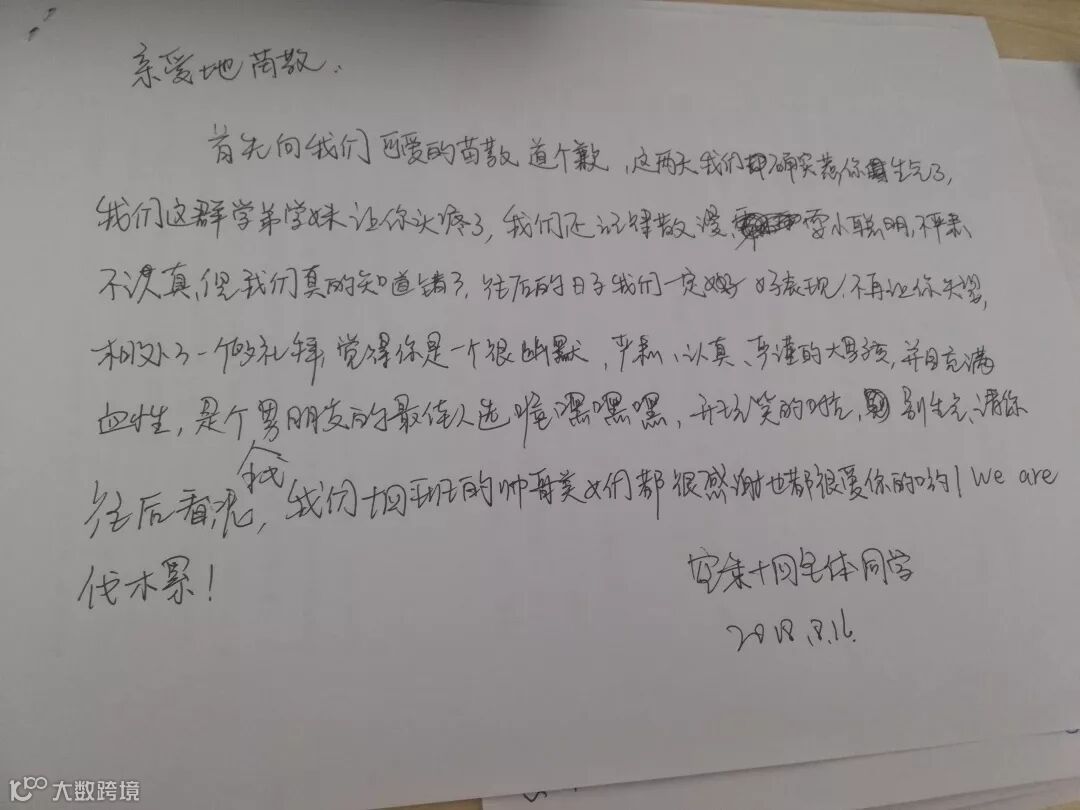 亲爱地苗教:
首先向我们可爱的苗教道个歉,这两天我们确实惹你生气了,
我们这群学弟学妹让你头疼了,我们还记律散漫、耍小聪明,不严肃
不认真,但我们真的知道错了,往后的日子我们一定好好表现,不再让你失望,
相处了一个多礼拜,觉得你是一个很幽默,严肃、认真、严谨的大男孩,并且充满
血性,是个男朋友的最佳人选嘿嘿嘿,开玩笑的哈,别生气、请你
往后看我,我们十四班的帅哥美女们都很感谢也都很爱你的哟! We are
伐木累!
空乘十四全体同学
2018.8.16.
大数跨境